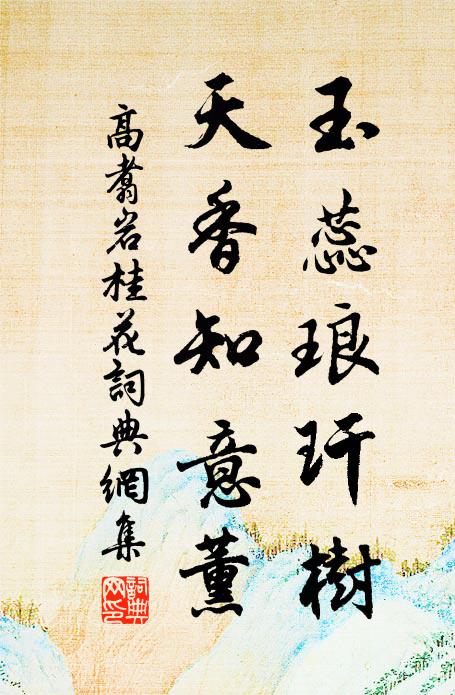 玉蕊琅玕樹
天香知意薰
高翥岩桂花詞典網集
詞典网印